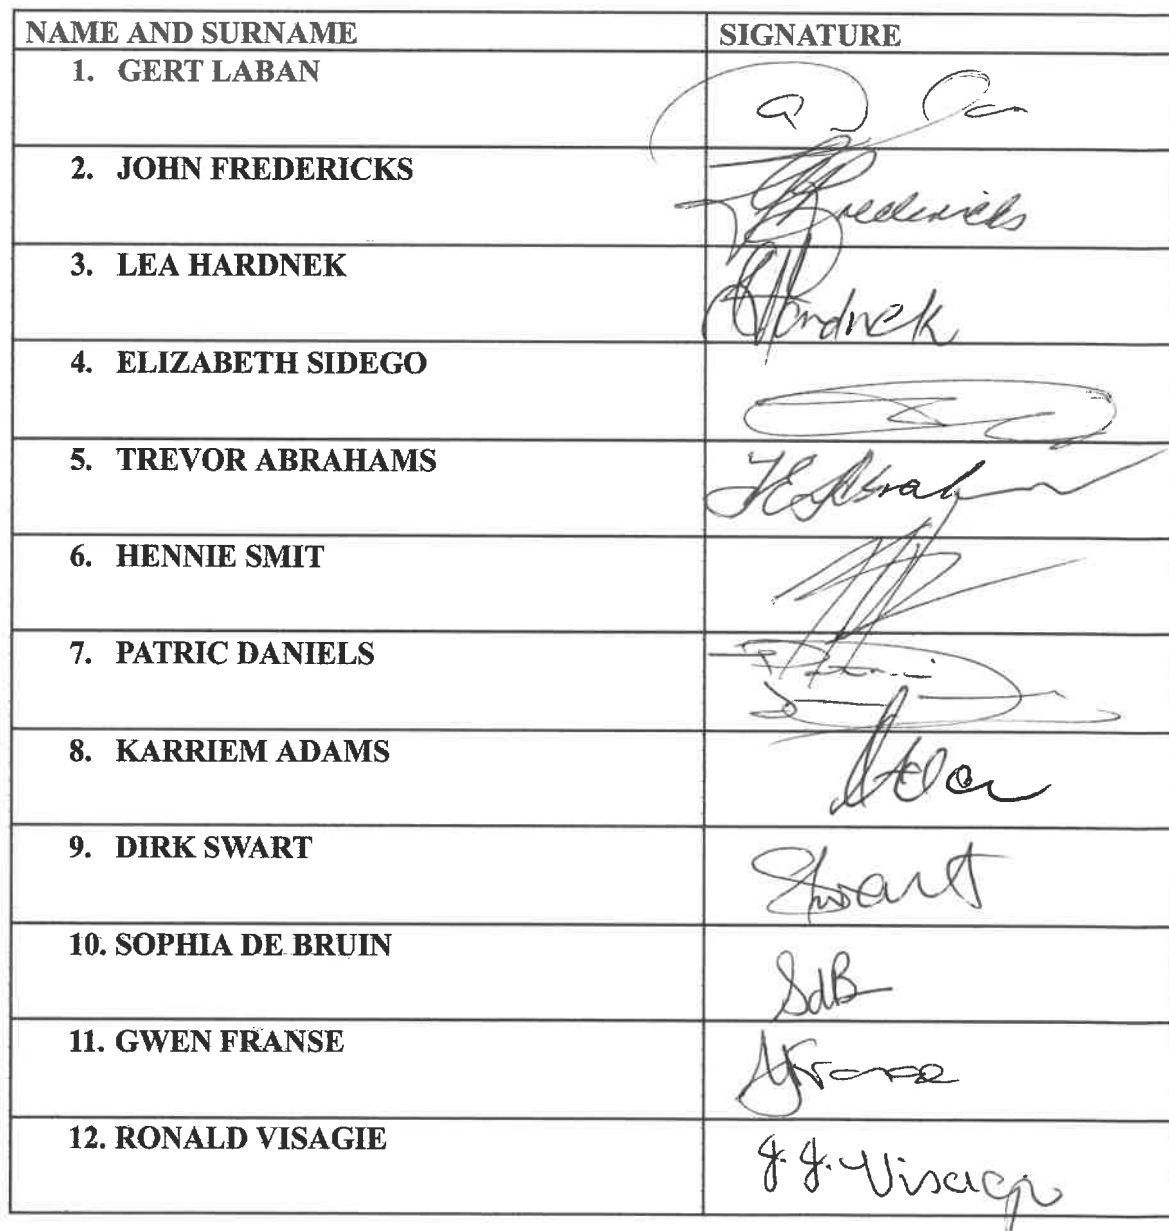 NAME AND SURNAME SIGNATURE
1. GERT LABAN
2. JOHN FREDERICKS Fredericks
3. LEA HARDNEK Hardnek
4. ELIZABETH SIDEGO
5. TREVOR ABRAHAMS
6. HENNIE SMIT
7. PATRIC DANIELS
8. KARRIEM ADAMS
9. DIRK SWART Swart
10. SOPHIA DE BRUIN SdB
11. GWEN FRANSE
12. RONALD VISAGIE J. J. Visagie